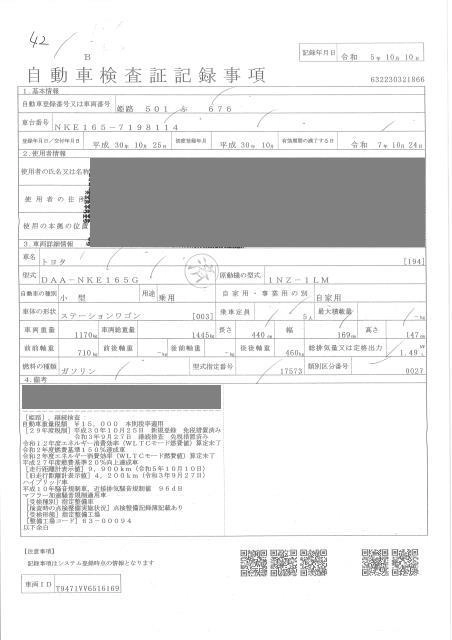 42
B
記録年月日 令和 5年 10月 10日
自動車検査証記録事項
632230321866
1.基本情報
自動車登録番号又は車両番号 姫路 501 ぶ 676
車台番号 NKE165-7198114
登録年月日/交付年月日 平成 30年 10月 25日 初度登録年月 平成 30年 10月 有効期間の満了する日 令和 7年 10月 24日
2.使用者情報
使用者の氏名又は名称
使用者の住所
使用の本拠の位置
3.車両詳細情報
車名 トヨタ [194]
型式 DAA-NKE165G 原動機の型式 1NZ-1LM
済
自動車の種別 小型 用途 乗用 自家用・事業用の別 自家用
車体の形状 ステーションワゴン [003] 乗車定員 5人 最大積載量 -kg
車両重量 1170kg 車両総重量 1445kg 長さ 440cm 幅 169cm 高さ 147cm
前前軸重 710kg 前後軸重 -kg 後前軸重 -kg 後後軸重 460kg 総排気量又は定格出力 1.49L
燃料の種類 ガソリン 型式指定番号 17573 類別区分番号 0027
4.備考
[姫路], 継続検査
自動車重量税額 ¥15,000 本則税率適用
[29年度税制] 平成30年10月25日 新規登録 免税措置済み
令和3年9月27日 継続検査 免税措置済み
令和12年度エネルギー消費効率(WLTCモード燃費値)算定未了
令和2年度燃費基準150%達成車
令和2年度エネルギー消費効率(WLTCモード燃費値)算定未了
平成27年度燃費基準20%向上達成車
[走行距離計表示値] 9,900km(令和5年10月10日)
[旧走行距離計表示値] 4,200km(令和3年9月27日)
ハイブリッド車
平成10年騒音規制車, 近接排気騒音規制値 96dB
マフラー加速騒音規制適用車
[受検種別] 指定整備車
[検査時の点検整備実施状況] 点検整備記録簿記載あり
[受検形態] 指定整備工場
[整備工場コード] 63-00094
以下余白
[注意事項]
記録事項はシステム登録時点の情報となります
車両ID T9471VV6516169